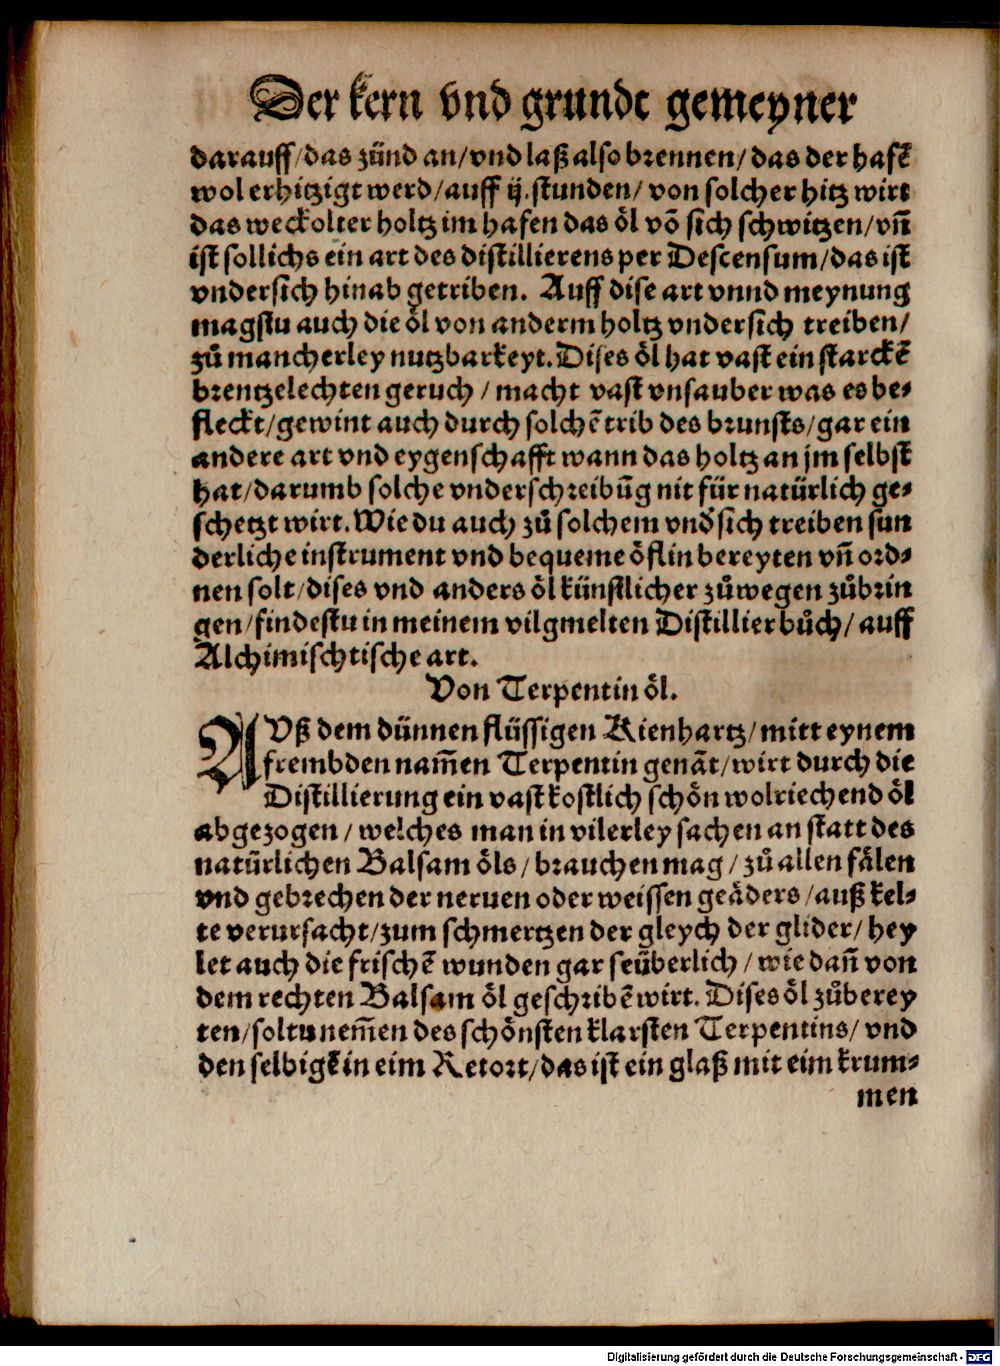 Der kern vnd grundt gemeyner
darauff/das zünd an/vnd laß also brennen/das der hafẽ
wol erhitzigt werd/auff ij.stunden/von solcher hitz wirt
das weckolter holtz im hafen das öl võ sich schwitzen/vñ
ist sollichs ein art des distillierens per Descensum/das ist
vndersich hinab getriben. Auff dise art vnnd meynung
magstu auch die öl von anderm holtz vndersich treiben/
zů mancherley nutzbarkeyt. Dises öl hat vast ein starckẽ
brentzelechten geruch / macht vast vnsauber was es be-
fleckt/gewint auch durch solchẽ trib des brunsts/gar ein
andere art vnd eygenschafft wann das holtz an jm selbst
hat/darumb solche vnderschreibũg nit für natürlich ge-
schetzt wirt. Wie du auch zů solchem vnd̕sich treiben sun
derliche instrument vnd bequeme öflin bereyten vñ ord-
nen solt/dises vnd anders öl künstlicher zůwegen zůbrin
gen/findestu in meinem vilgmelten Distillier bůch/ auff
Alchimischtische art.
Von Terpentin öl.
AVß dem dünnen flüssigen Kienhartz/mitt eynem
frembden nam̃en Terpentin genãt/wirt durch die
Distillierung ein vast kostlich schön wolriechend öl
abgezogen / welches man in vilerley sachen an statt des
natürlichen Balsam öls / brauchen mag / zů allen fälen
vnd gebrechen der neruen oder weissen geäders /auß kel-
te verursacht/zum schmertzen der gleych der glider/ hey
let auch die frischẽ wunden gar seüberlich / wie dañ von
dem rechten Balsam öl geschribẽ wirt. Dises öl zůberey
ten/soltu nem̃en des schönsten klarsten Terpentins/ vnd
den selbigẽ in eim Retort/das ist ein glaß mit eim krum-
men
Digitalisierung gefördert durch die Deutsche Forschungsgemeinschaft - DFG